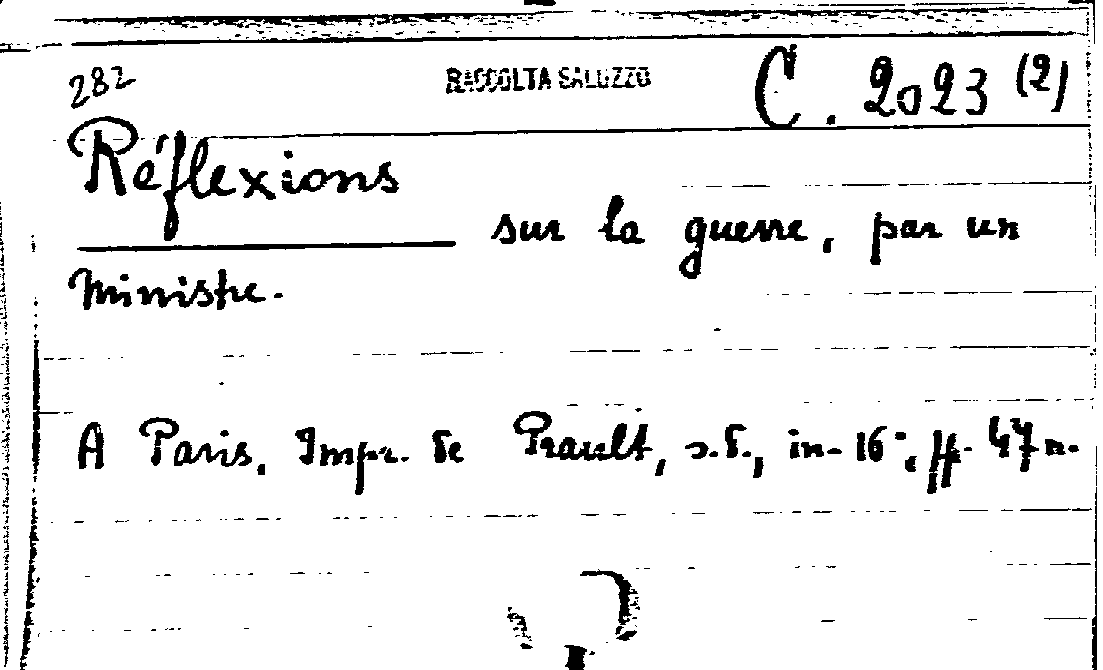 282 RACCOLTA SALUZZO C. 2023 (2)
Réflexions
sur la guerre, par un
ministre.
A Paris, Impr. de Prault, s.d., in-16°, ff. 47 n.